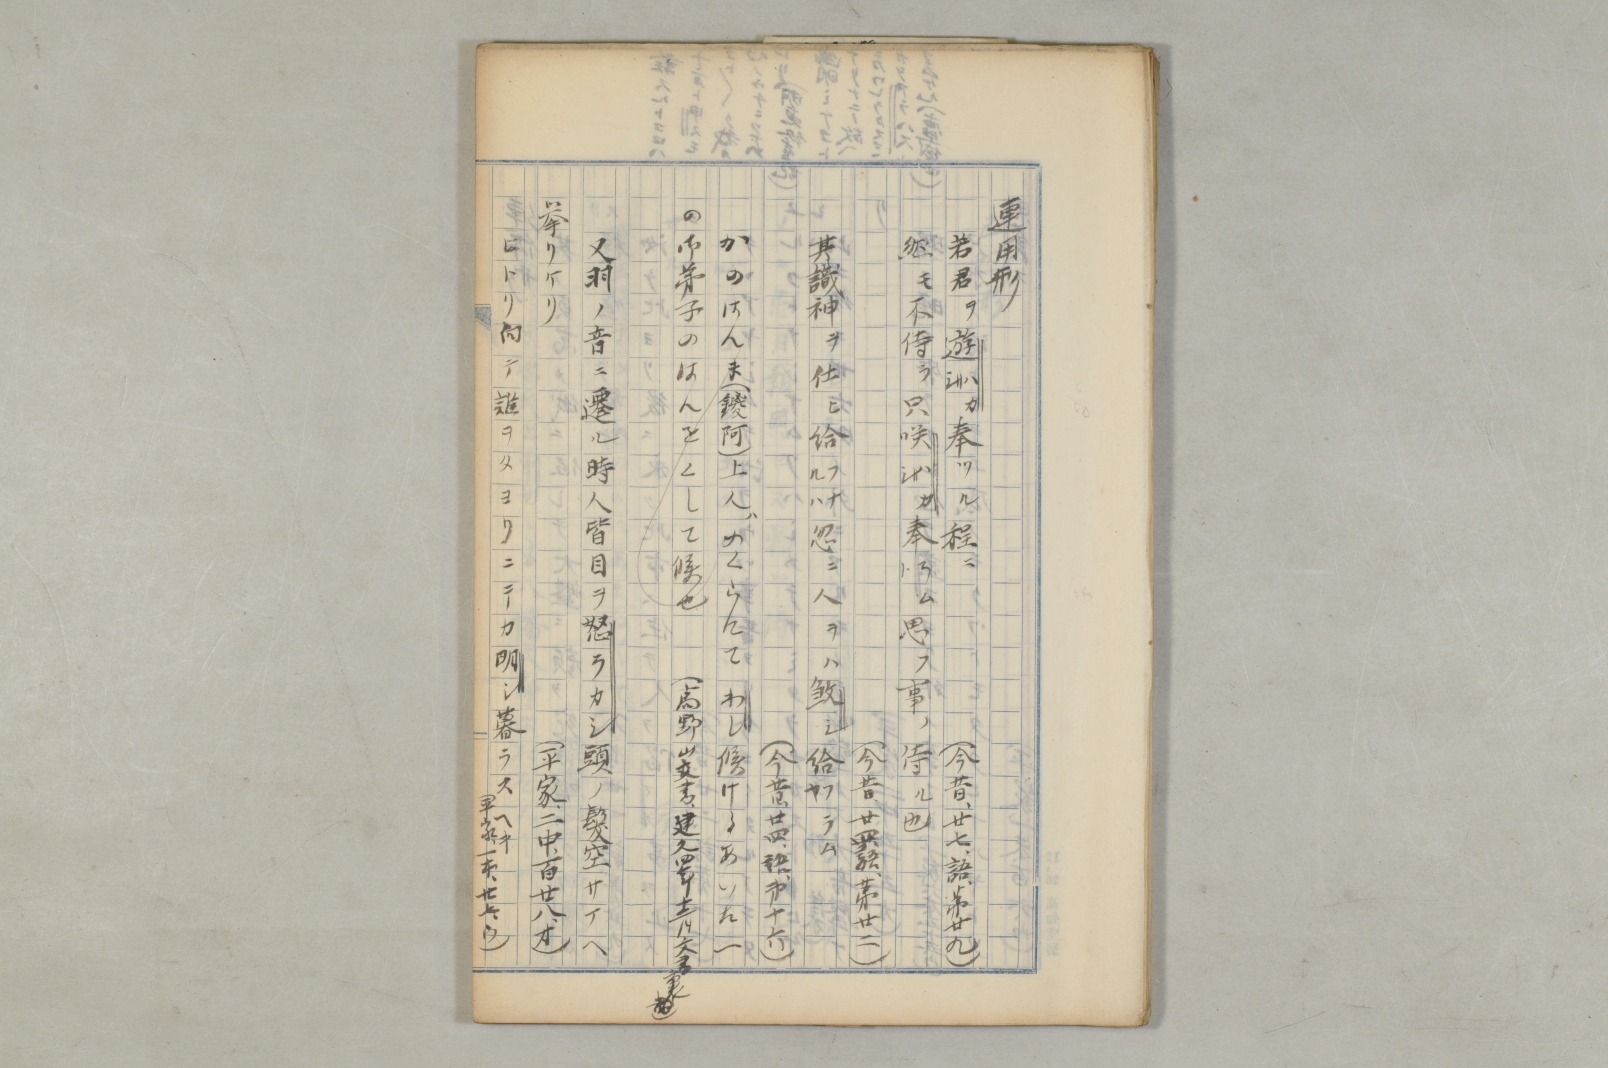 連用形
若君ヲ遊ハカ奉ツル程ニ
(今昔、廿七、語、第廿九)
継モ不侍ラ只咲ハカ奉ラム思フ事ノ侍ル也
(今昔、廿四、語、第廿二)
其識神ヲ仕ヒ給フナルハ忽ニ人ヲハ煞シ給フラム
(今昔、廿四、語、第十六)
かのはんま(鑁阿)上人ハめくらにてわし候けるあいた一
の御弟子のはんをくして候也
(高野山文書、建久四年
又羽ノ音ニ遷ル時人皆目ヲ怒ラカシ頭ノ髪空サマヘ
挙リケリ
(平家、二中、百廿八、オ)
ヒトリ向テ誰ヲタヨリニテカ明シ暮ラスヘキ
平家、一本、廿六、ウ)